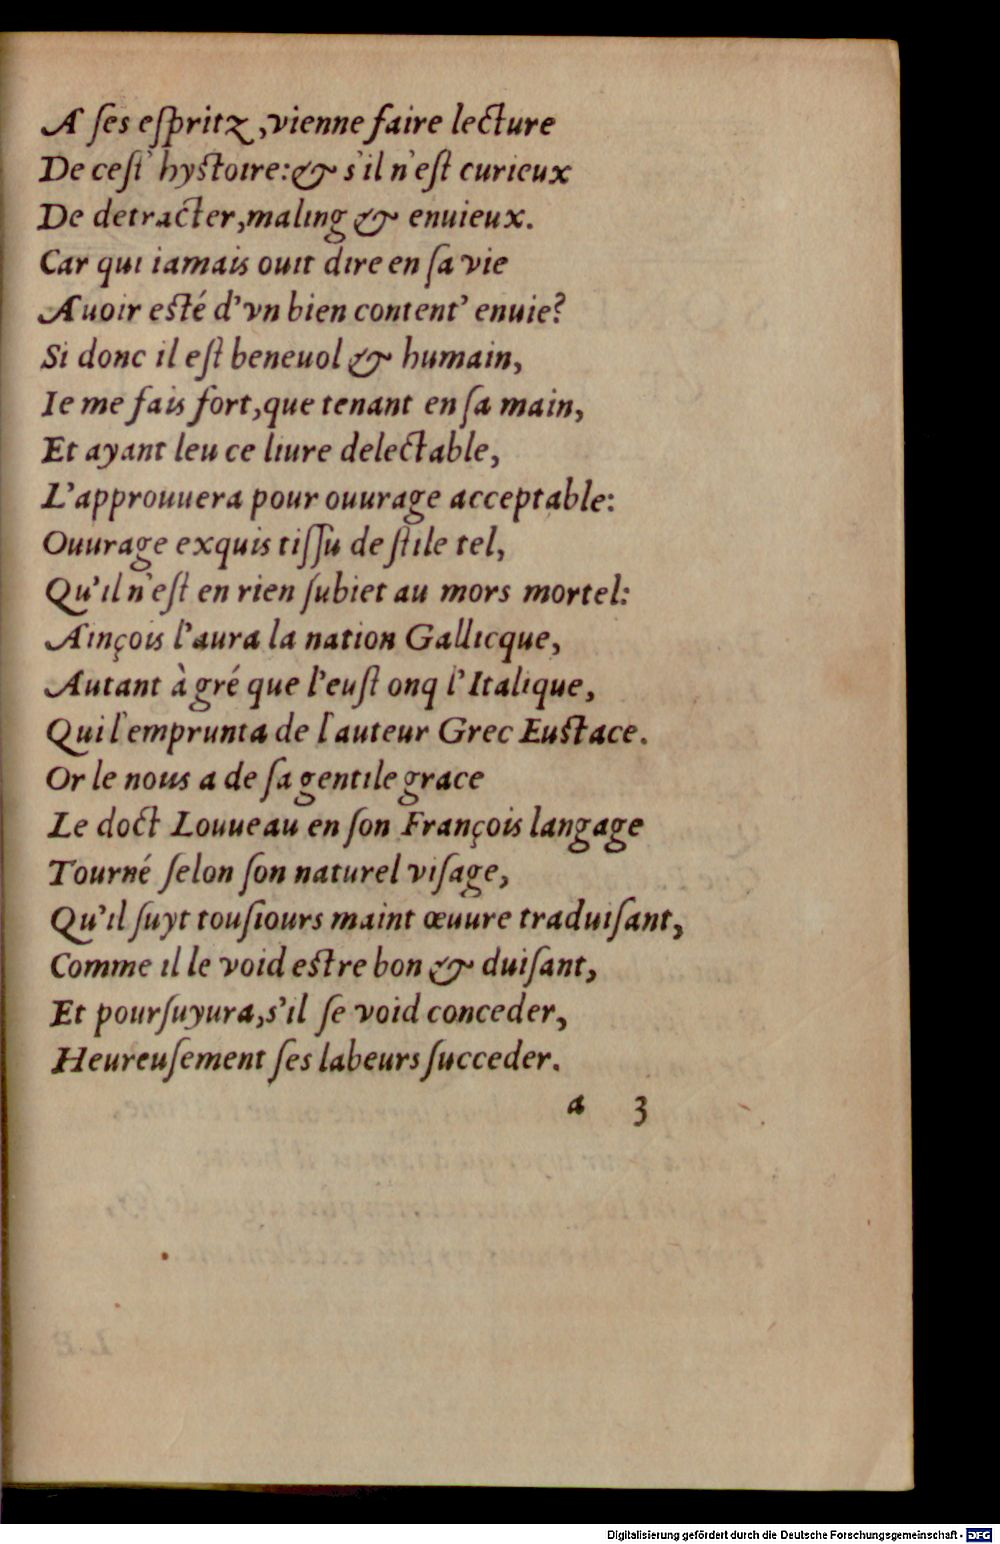 A ſes eſpritz, vienne faire lecture
De ceſt' hyſtoire: & s'il n'eſt curieux
De detracter, maling & enuieux.
Car qui iamais ouit dire en ſa vie
Auoir eſté d'vn bien content' enuie?
Si donc il eſt beneuol & humain,
Ie me fais fort, que tenant en ſa main,
Et ayant leu ce liure delectable,
L'approuuera pour ouurage acceptable:
Ouurage exquis tiſſu de ſtile tel,
Qu'il n'eſt en rien ſubiet au mors mortel:
Ainçois l'aura la nation Gallicque,
Autant à gré que l'euſt onq l'Italique,
Qui l'emprunta de l'auteur Grec Euſtace.
Or le nous a de ſa gentile grace
Le doct Louueau en ſon François langage
Tourné ſelon ſon naturel viſage,
Qu'il ſuyt touſiours maint œuure traduiſant,
Comme il le void eſtre bon & duiſant,
Et pourſuyura, s'il ſe void conceder,
Heureuſement ſes labeurs ſucceder.
a 3
Digitalisierung gefördert durch die Deutsche Forschungsgemeinschaft - DFG